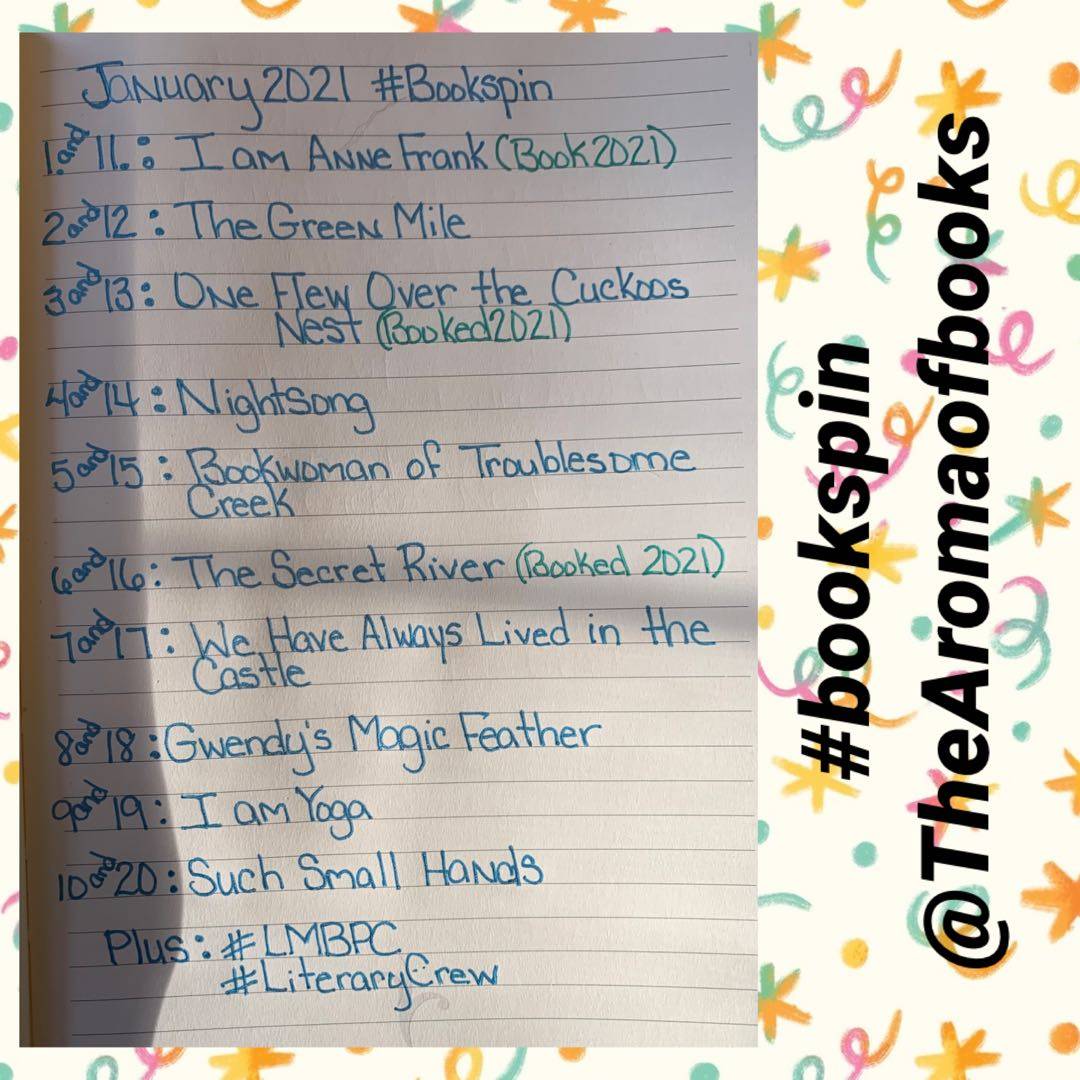 January 2021 #Bookspin
1. and 11. : I am Anne Frank (Book 2021)
2 and 12 : The Green Mile
3 and 13 : One Flew Over the Cuckoos
Nest (Booked 2021)
4 and 14 : Nightsong
5 and 15 : Bookwoman of Troublesome
Creek
6 and 16 : The Secret River (Booked 2021)
7 and 17 : We Have Always Lived in the
Castle
8 and 18 : Gwendy's Magic Feather
9 and 19 : I am Yoga
10 and 20 : Such Small Hands
Plus : #LMBPC
#LiteraryCrew
#bookspin
@TheAromaofbooks